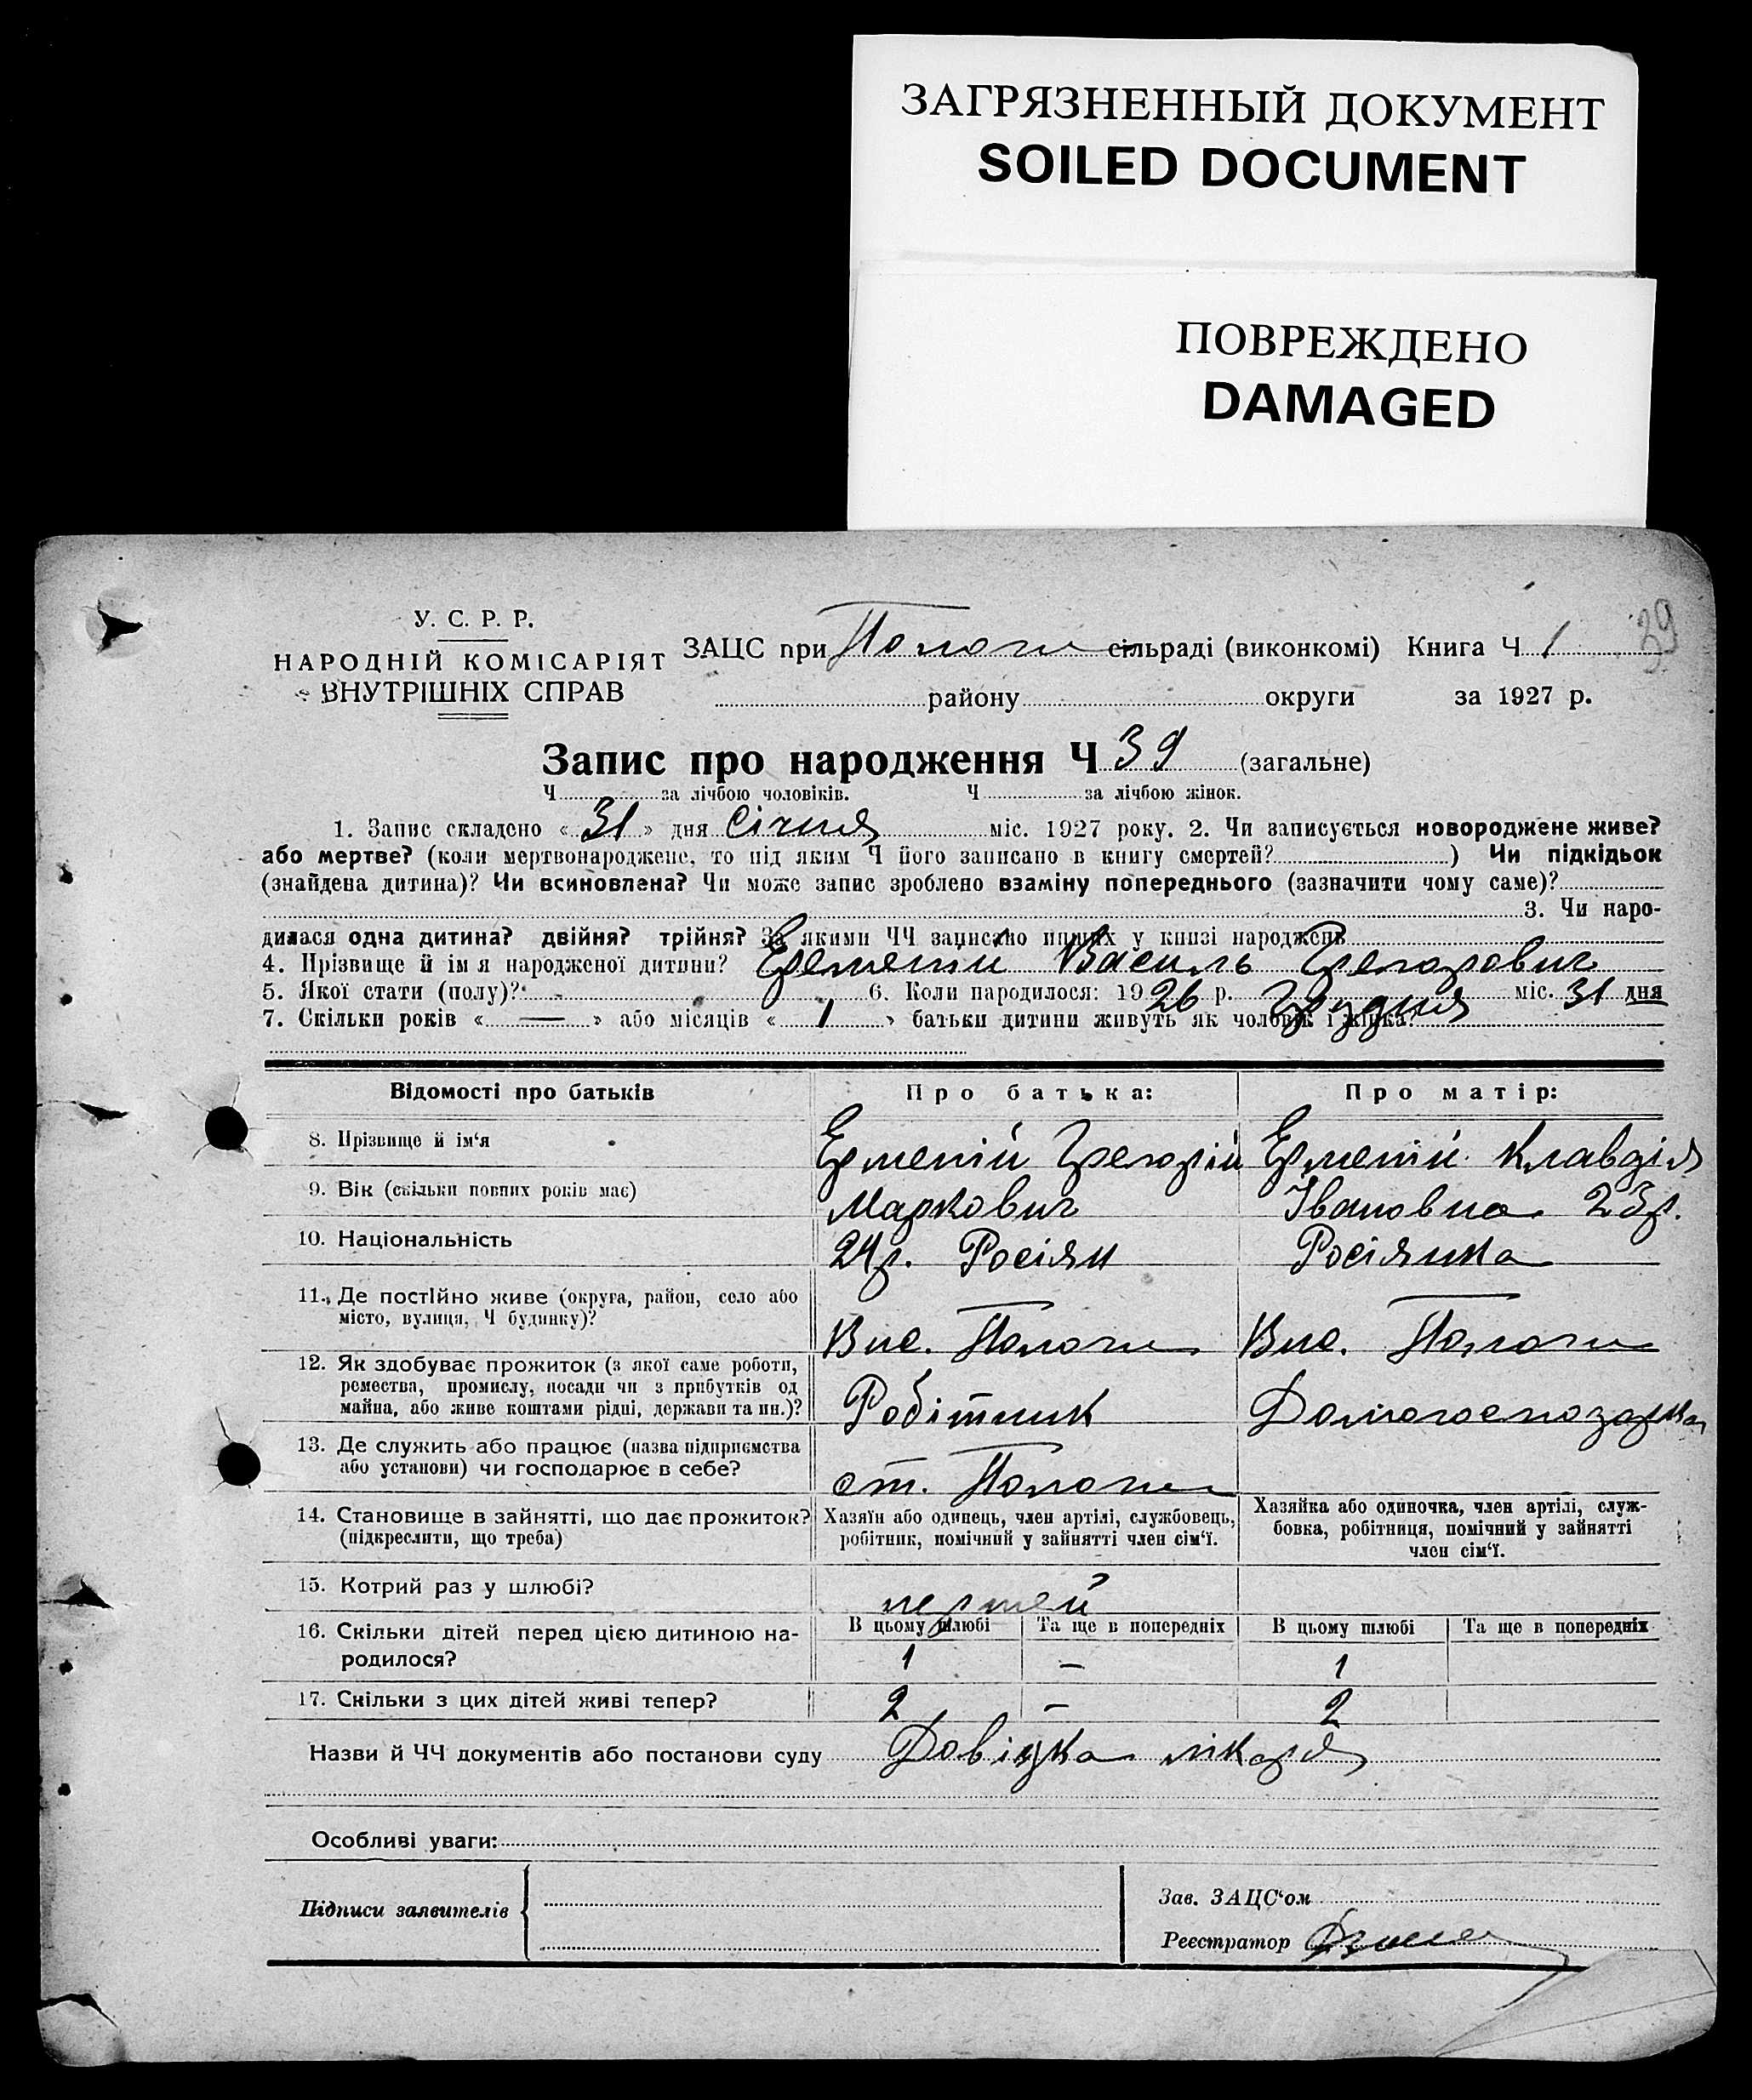 ЗАГРЯЗНЕННЫЙ ДОКУМЕНТ
SOILED DOCUMENT
ПОВРЕЖДЕНО
DAMAGED
39
У. С. Р. Р.
НАРОДНІЙ КОМІСАРІЯТ
ВНУТРІШНІХ СПРАВ
ЗАЦС при Пологи сільраді (виконкомі) Книга Ч 1
району округи за 1927 р.
Запис про народження Ч 39 (загальне)
Ч за лічбою чоловіків. Ч за лічбою жінок.
1. Запис складено « 31 » дня Січня міс. 1927 року. 2. Чи записується новороджене живе?
або мертве? (коли мертвонароджене, то під яким Ч його записано в книгу смертей? ) Чи підкідьок
(знайдена дитина)? Чи всиновлена? Чи може запис зроблено взаміну попереднього (зазначити чому саме)?
3. Чи наро-
дилася одна дитина? двійня? трійня? За якими ЧЧ записано инших у книзі народжень
4. Прізвище й ім я народженої дитини? Василь Грегорович
5. Якої стати (полу)? 6. Коли народилося: 1926 р. Грудня міс. 31 дня
7. Скільки років « — » або місяців « 1 » батьки дитини живуть як чоловік і жінка?
Відомості про батьків Про батька: Про матір:
8. Прізвище й ім'я Ерменій Грегорій Ерменій Клавдія
9. Вік (скільки повних років має) Маркович Івановна 23р.
10. Національність 24р. Росіян Росіянка
11. Де постійно живе (округа, район, село або
місто, вулиця, Ч будинку)? Вис. Пологи Вис. Пологи
12. Як здобуває прожиток (з якої саме роботи,
ремества, промислу, посади чи з прибутків од
майна, або живе коштами рідні, держави та ин.)? Робітник Домогосподарка
13. Де служить або працює (назва підприємства
або установи) чи господарює в себе? ст. Пологи
14. Становище в зайнятті, що дає прожиток?
(підкреслити, що треба)
Хазяїн або одинець, член артілі, службовець,
робітник, помічний у зайнятті член сім'ї.
Хазяйка або одиночка, член артілі, служ-
бовка, робітниця, помічний у зайнятті
член сім'ї.
15. Котрий раз у шлюбі? перший
16. Скільки дітей перед цією дитиною на-
родилося?
В цьому шлюбі Та ще в попередніх В цьому шлюбі Та ще в попередніх
1 – 1
17. Скільки з цих дітей живі тепер? 2 – 2
Назви й ЧЧ документів або постанови суду Довідка лікаря
Особливі уваги:
Підписи заявителів
Зав. ЗАЦС'ом
Реєстратор